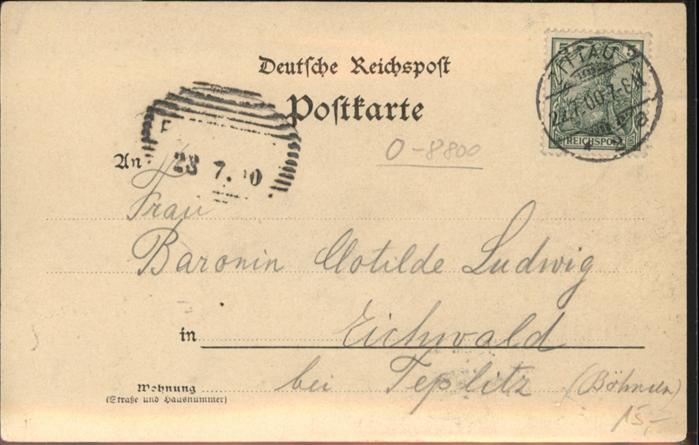 Deutsche Reichspost
Postkarte
5 5
ZITTAU
22.7.00. 7-8N
REICHSPOST
0-8800
23 7. 00
An
Frau
Baronin Clotilde Ludwig
in Eichwald
bei Teplitz (Böhmen)
Wohnung
(Straße und Hausnummer)
15,-